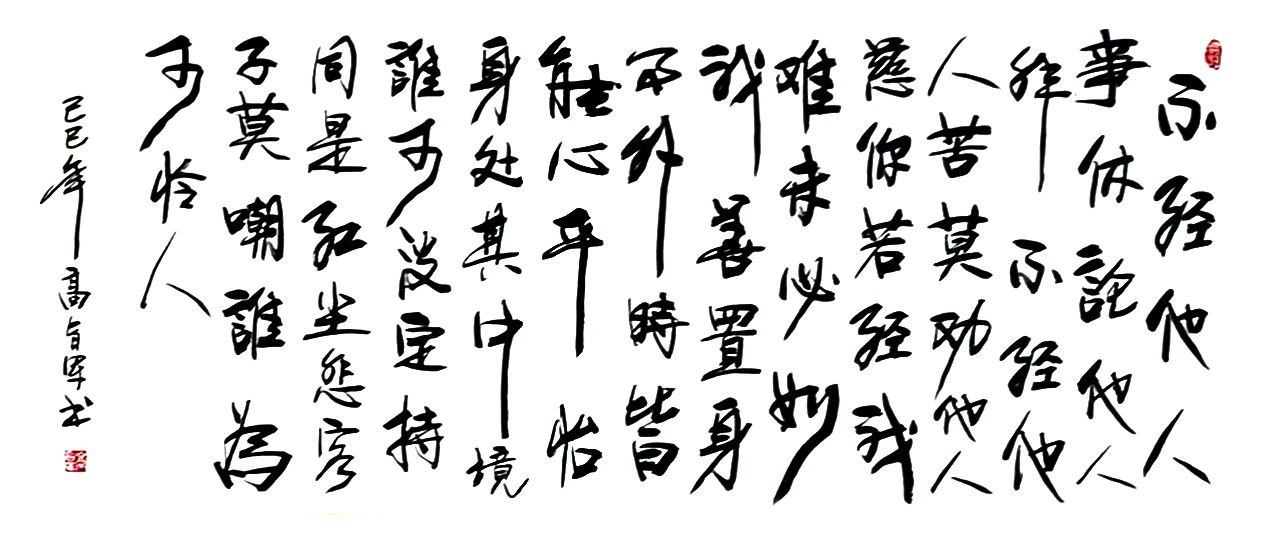 不经他人
事休說他人
非不经他
人苦莫劝他人
慈你若经我
难未必如
我善置身
不外時皆
能心平怡
身处其中境
誰可没定持
同是紅尘悲客
子莫嘲誰為
可怜人
己巳年高军书